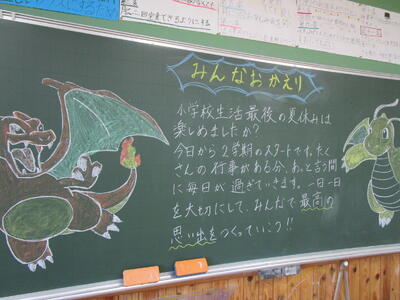 みんなおかえり
小学校生活最後の夏休みは
楽しめましたか?
今日から2学期のスタートです。たく
さんの行事がある分、あっと言う間
に毎日が過ぎていきます。一日一日
を大切にして、みんなで最高の
思い出をつくっていこう!!